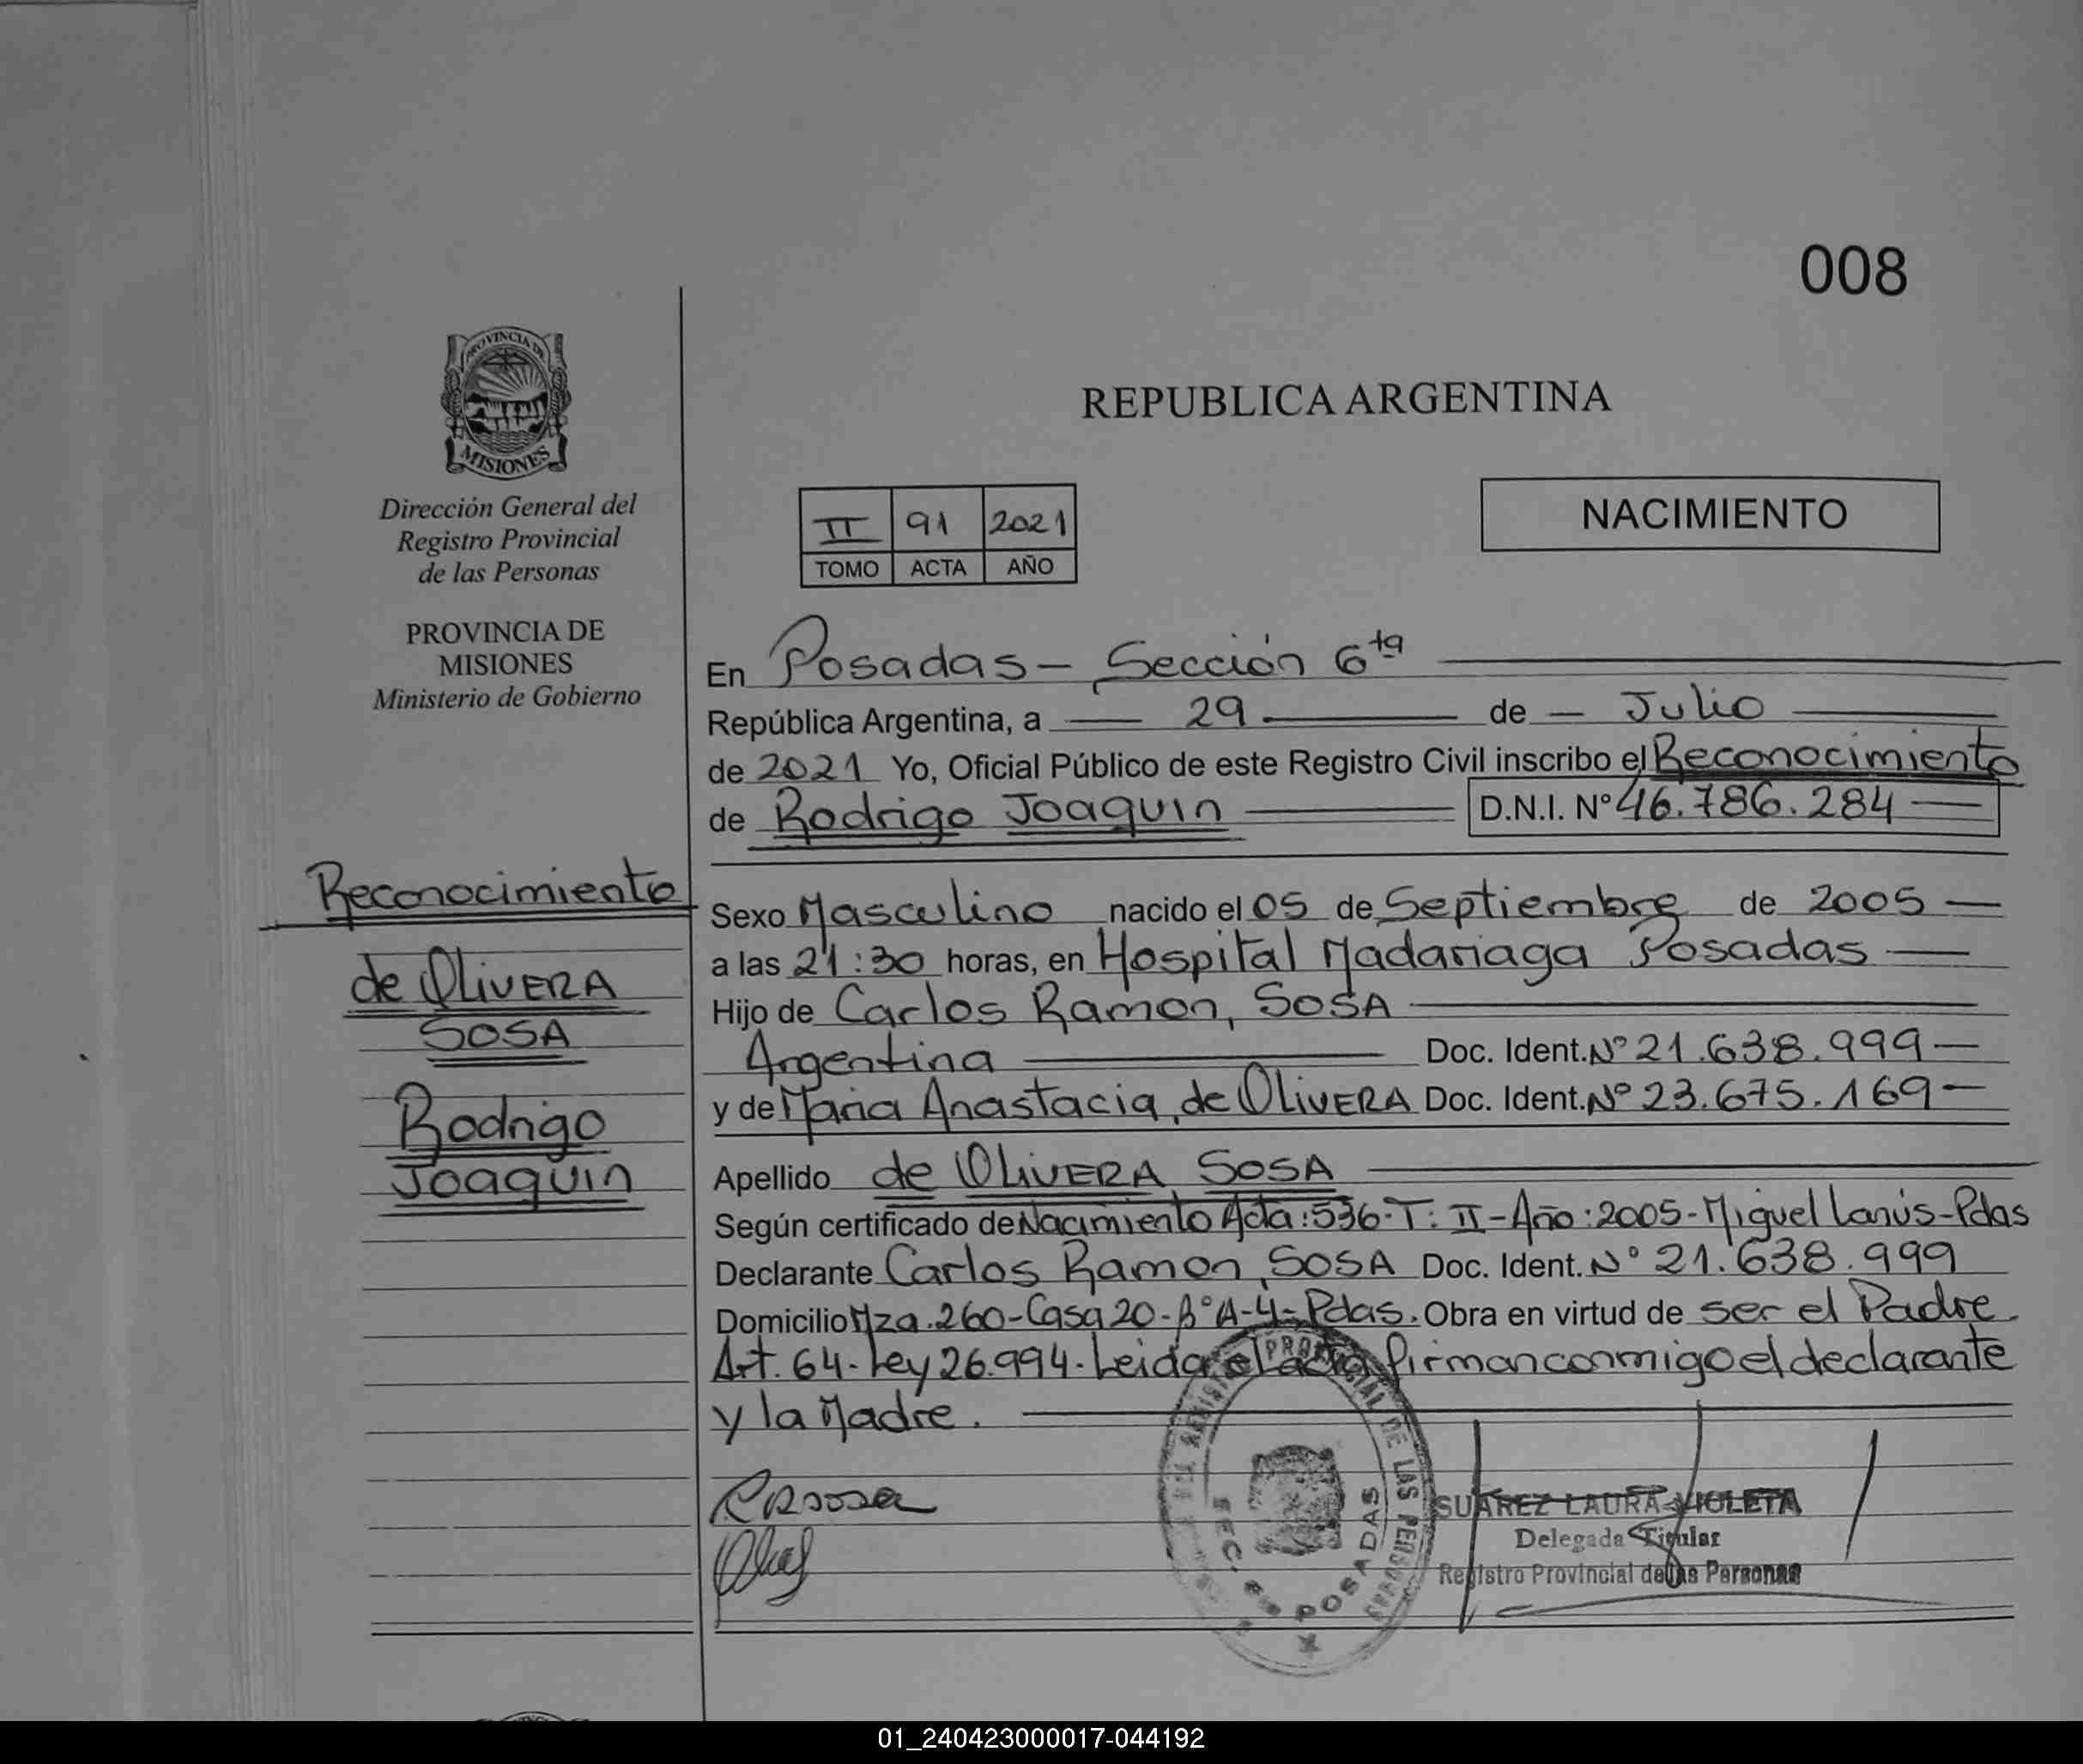 008
PROVINCIA DE
MISIONES
REPUBLICA ARGENTINA
Dirección General del
Registro Provincial
de las Personas
PROVINCIA DE
MISIONES
Ministerio de Gobierno
II 91 2021
TOMO ACTA AÑO
NACIMIENTO
En Posadas - Sección 6ta
República Argentina, a 29 de - Julio
de 2021 Yo, Oficial Público de este Registro Civil inscribo el Reconocimiento
de Rodrigo Joaquin D.N.I. Nº 46.786.284
Reconocimiento
de OLIVERA
SOSA
Rodrigo
Joaquin
Sexo Masculino nacido el 05 de Septiembre de 2005
a las 21:30 horas, en Hospital Madariaga Posadas
Hijo de Carlos Ramon, SOSA
Argentina Doc. Ident. Nº 21.638.999
y de Maria Anastacia, de OLIVERA Doc. Ident. Nº 23.675.169
Apellido de OLIVERA SOSA
Según certificado de Nacimiento Acta: 536-T: II-Año: 2005-Miguel Lanús-Pdas
Declarante Carlos Ramon, SOSA Doc. Ident. Nº 21.638.999
Domicilio Mza. 260-Casa 20-Bº A-4-Pdas. Obra en virtud de ser el Padre
Art. 64. Ley 26.994. Leida el acta firman conmigo el declarante
y la Madre.
SEC. POSADAS
SUAREZ LAURA VIOLETA
Delegada Titular
Registro Provincial de las Personas
01_240423000017-044192